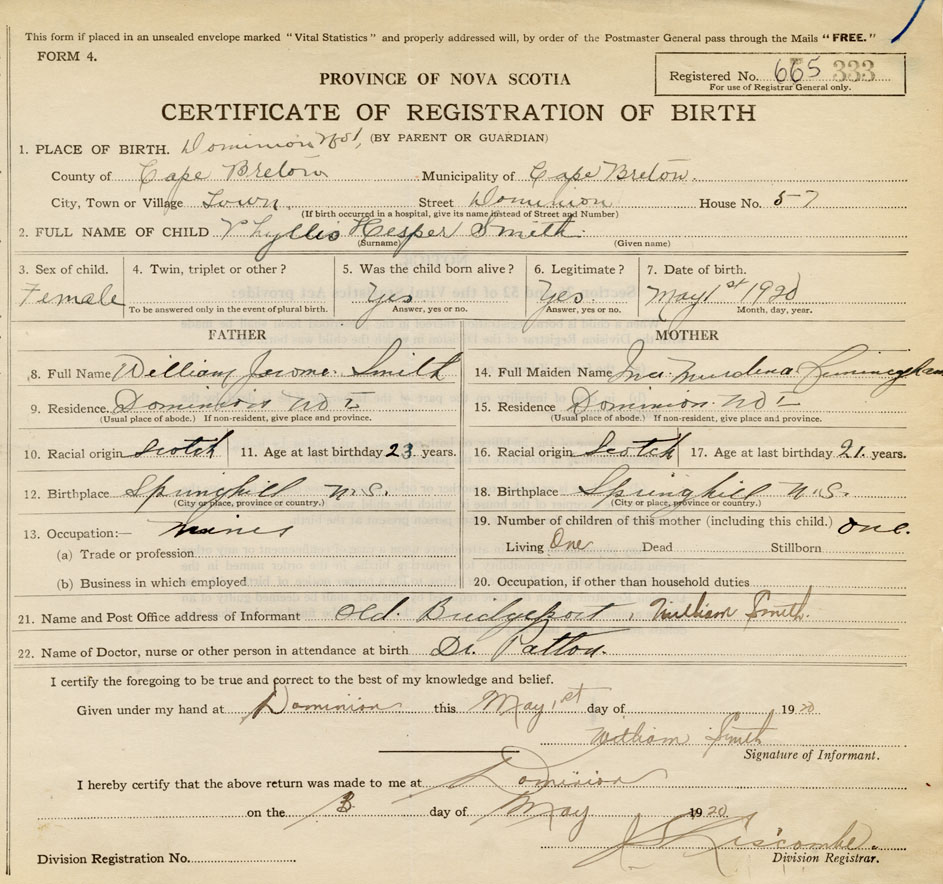 This form if placed in an unsealed envelope marked "Vital Statistics" and properly addressed will, by order of the Postmaster General pass through the Mails "FREE."
FORM 4.
Registered No. 665 333
For use of Registrar General only.
PROVINCE OF NOVA SCOTIA
CERTIFICATE OF REGISTRATION OF BIRTH
(BY PARENT OR GUARDIAN)
1. PLACE OF BIRTH. Dominion No 1,
County of Cape Breton Municipality of Cape Breton.
City, Town or Village Town. Street Dominion House No. 57
(If birth occurred in a hospital, give its name instead of Street and Number)
2. FULL NAME OF CHILD Phyllis Hesper Smith
(Surname) (Given name)
3. Sex of child. 4. Twin, triplet or other? 5. Was the child born alive? 6. Legitimate? 7. Date of birth.
Female Yes Yes. May 1st 1920
To be answered only in the event of plural birth. Answer, yes or no. Answer, yes or no. Month, day, year.
FATHER MOTHER
8. Full Name William Jerome Smith 14. Full Maiden Name Murdena
9. Residence. Dominion No 15. Residence Dominion No
(Usual place of abode.) If non-resident, give place and province. (Usual place of abode.) If non-resident, give place and province.
10. Racial origin Scotch 11. Age at last birthday 23 years. 16. Racial origin Scotch 17. Age at last birthday 21. years.
12. Birthplace Springhill N.S. 18. Birthplace Springhill N.S.
(City or place, province or country.) (City or place, province or country.)
13. Occupation:— 19. Number of children of this mother (including this child.) one.
(a) Trade or profession Living One Dead Stillborn
(b) Business in which employed 20. Occupation, if other than household duties
21. Name and Post Office address of Informant Old Bridgeport, William Smith.
22. Name of Doctor, nurse or other person in attendance at birth Dr. Patton.
I certify the foregoing to be true and correct to the best of my knowledge and belief.
Given under my hand at Dominion this May 1st day of 1920
William Smith
Signature of Informant.
I hereby certify that the above return was made to me at Dominion
on the 3 day of May 1920
Liscombe.
Division Registration No. Division Registrar.